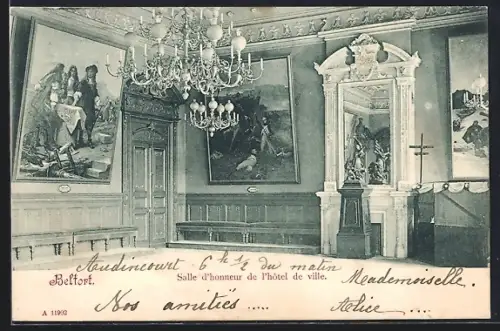 Audincourt 6h ½ du matin
Belfort. Salle d'honneur de l'hôtel de ville.
Mademoiselle.
Nos amitiés ..... Alice ....
A 11902